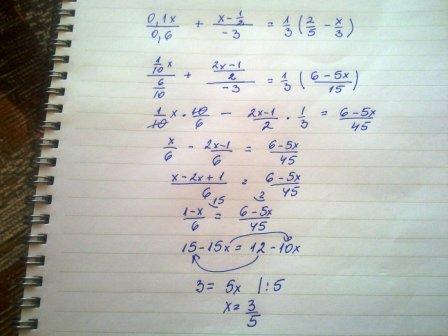 0,1x/0,6 + (x - 1/2)/(-3) = 1/3 (2/5 - x/3)
(1/10 x)/(6/10) + ((2x-1)/2)/(-3) = 1/3 ((6-5x)/15)
1/10 x · 10/6 - (2x-1)/2 · 1/3 = (6-5x)/45
x/6 - (2x-1)/6 = (6-5x)/45
(x-2x+1)/6 = (6-5x)/45
15 2
(1-x)/6 = (6-5x)/45
15-15x = 12-10x
3 = 5x |:5
x = 3/5